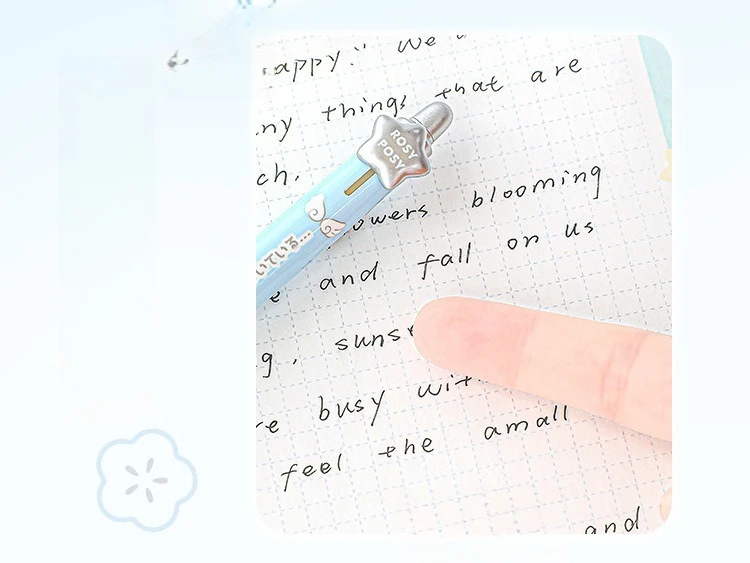 appy." We
ny things that are
ch.
ROSY
POSY
owers blooming
いている...
e and fall on us
g, suns
re busy wit
feel the amall
and